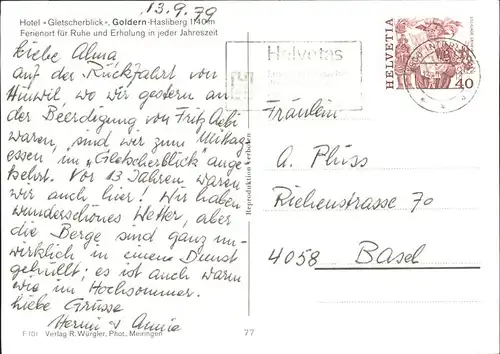 13.9.79
Hotel «Gletscherblick», Goldern-Hasliberg 1140m
Ferienort für Ruhe und Erholung in jeder Jahreszeit
Liebe Alma
auf der Rückfahrt von
Hinwil, wo wir gestern an
der Beerdigung von Fritz Aebi
waren, sind wir zum Mittag
essen im "Gletscherblick" ange
kehrt. Vor 13 Jahren waren
wir auch hier! Wir haben
wunderschönes Wetter, aber
die Berge sind ganz un-
wirklich in einem Dunst
gehüllt; es ist auch warm
wie im Hochsommer.
Liebe Grüsse
Hermi & Annie
F 101 Verlag R. Würgler, Phot., Meiringen
77
Reproduktion verboten
Helvetas
HELVETIA
40
Fräulein
A. Plüss
Riehenstrasse 70
4058 Basel